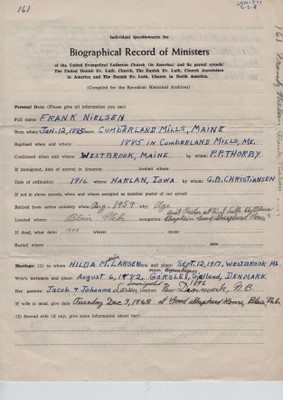 161
Individual Questionnaire for
Biographical Record of Ministers
of the United Evangelical Lutheran Church (in America) and its parent synods:
The United Danish Ev. Luth. Church, The Danish Ev. Luth. Church Association
in America and The Danish Ev. Luth. Church in North America.
(Compiled for the Synodical Historical Archives)
Personal Data: (Please give all information you can)
Full name: FRANK NIELSEN
Born when: JAN. 12, 1885 where: CUMBERLAND MILLS, MAINE
Baptized when and where: 1885 IN CUMBERLAND MILLS, ME.
Confirmed when and where: WESTBROOK, MAINE by whom: P.P. THORBY
If immigrant, date of arrival in America located where:
Date of ordination: 1916 where: HARLAN, IOWA. by whom: G.B. CHRISTIANSEN
If not in above synods, when and where accepted as member pastor of our synod:
Retired from active ministry when: Aug. 1959 why: Age
Located where: Blair Neb. occupation: Asst Pastor at First Luth. Ch. Blair
Chaplain Good Shepherd Home
If dead, what date: where:
Buried where date
Marriage: (1) to whom HILDA M. LARSEN date and place: SEPT. 12, 1917, WESTBROOK ME
Wife's birthdate and place: AUGUST 6, 1892, Sjelland, DENMARK
Her parents: Jacob & Johanna Larsen New Denmark, N.B.
If wife is dead, give date Tuesday Dec 3, 1968 at Good Shepherd Home, Blair, Neb.
(2) Second wife (if any; give same information about her)